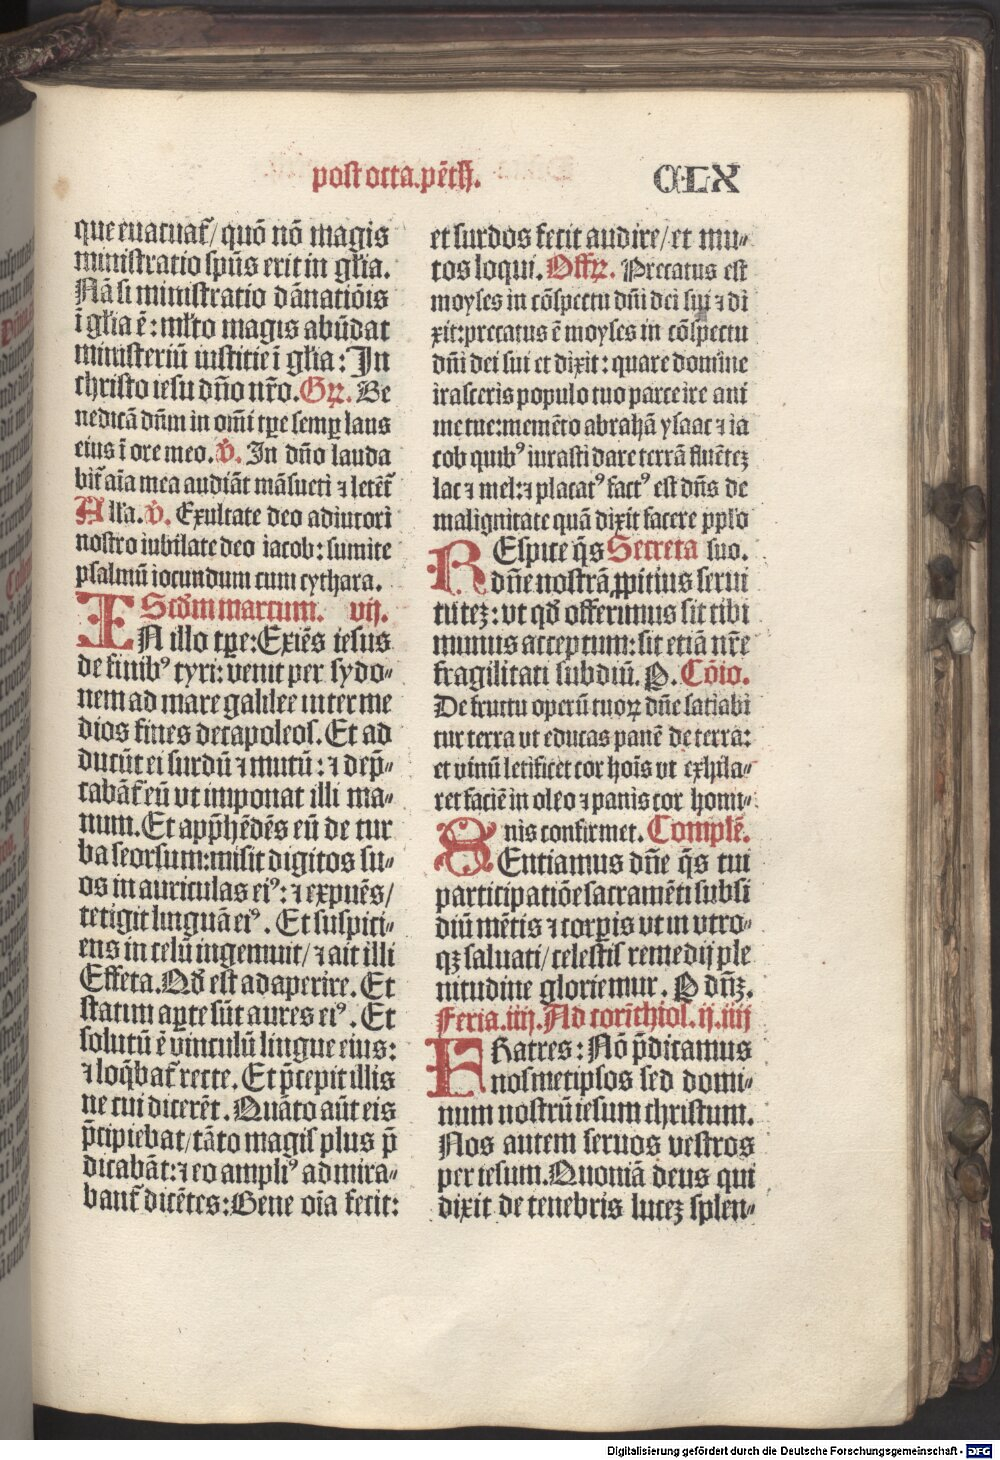 post octa.pēth.
CLX
que euacuat᷑/ quō nō magis
ministratio spūs erit in gl'ia.
Nā si ministratio dānatiōis
ī gl'ia ē: ml'to magis abūdat
ministeriū iusticie ī gl'ia: In
christo iesu dn̄o nr̄o. Gꝝ. Be
nedicā dn̄m in om̄i tꝑe semꝑ laus
eius ī ore meo. v̄. In dn̄o lauda
bit᷑ aīa mea audiāt māsueti ⁊ letēt᷑
Alľa. v̄. Exultate deo adiutori
nostro iubilate deo iacob: sumite
psalmū iocundum cum cythara.
Scd̄m marcum. vij.
IN illo tꝑe: Exiēs iesus
de finibꝰ tyri: venit per sydo⸗
nem ad mare galilee inter me
dios fines decapoleos. Et ad
ducūt ei surdū ⁊ mutū: ⁊ dep̄⸗
cabāt᷑ eū vt imponat illi ma⸗
num. Et app̄hēdēs eū de tur
ba seorsum: misit digitos su⸗
os in auriculas eiꝰ: ⁊ expuēs/
tetigit linguā eiꝰ. Et suspici⸗
ens in celū ingemuit/ ⁊ ait illi
Effeta. Qd̄ est adaperire. Et
statim aꝑte sūt aures eiꝰ. Et
solutū ē vinculū lingue eius:
⁊ loq̄bat᷑ recte. Et p̄cepit illis
ne cui dicerēt. Quāto aūt eis
p̄cipiebat/ tāto magis plus p̄
dicabāt: ⁊ eo ampliꝰ admira⸗
bant᷑ dicētes: Bene oīa fecit:
et surdos fecit audire/ et mu⸗
tos loqui. Offꝝ. Precatus est
moyses in cōspectu dn̄i dei sui ⁊ di
xit: precatus ē moyses in cōspectu
dn̄i dei sui et dixit: quare domine
irasceris populo tuo parce ire ani
me tue: memēto abrahā ysaac ⁊ ia
cob quibꝰ iurasti dare terrā fluēteꝫ
lac ⁊ mel: ⁊ placatꝰ factꝰ est dn̄s de
malignitate quā dixit facere pp̄lo
REspice q̄s Secreta suo.
dn̄e nostrā ꝓpitius serui
tuteꝫ: vt qd̄ offerimus sit tibi
munus acceptum: sit etiā nr̄e
fragilitati subdiū. P. Cōio.
De fructu operū tuoꝝ dn̄e satiabi
tur terra vt educas panē de terra:
et vinū letificet cor hoīs vt exhila⸗
ret faciē in oleo ⁊ panis cor homi⸗
nis confirmet. Complē.
SEntiamus dn̄e q̄s tui
participatiōe sacramēti subsi
diū mētis ⁊ corꝑis vt in vtro⸗
qꝫ saluati/ celestis remedij ple
nitudine gloriemur. P dn̄ꝫ.
Feria.iiij. Ad corīthios.ij.iiij
FRatres: Nō p̄dicamus
nosmetipsos sed domi⸗
num nostrū iesum christum.
Nos autem seruos vestros
per iesum. Quoniā deus qui
dixit de tenebris luceꝫ splen⸗
Digitalisierung gefördert durch die Deutsche Forschungsgemeinschaft - DFG